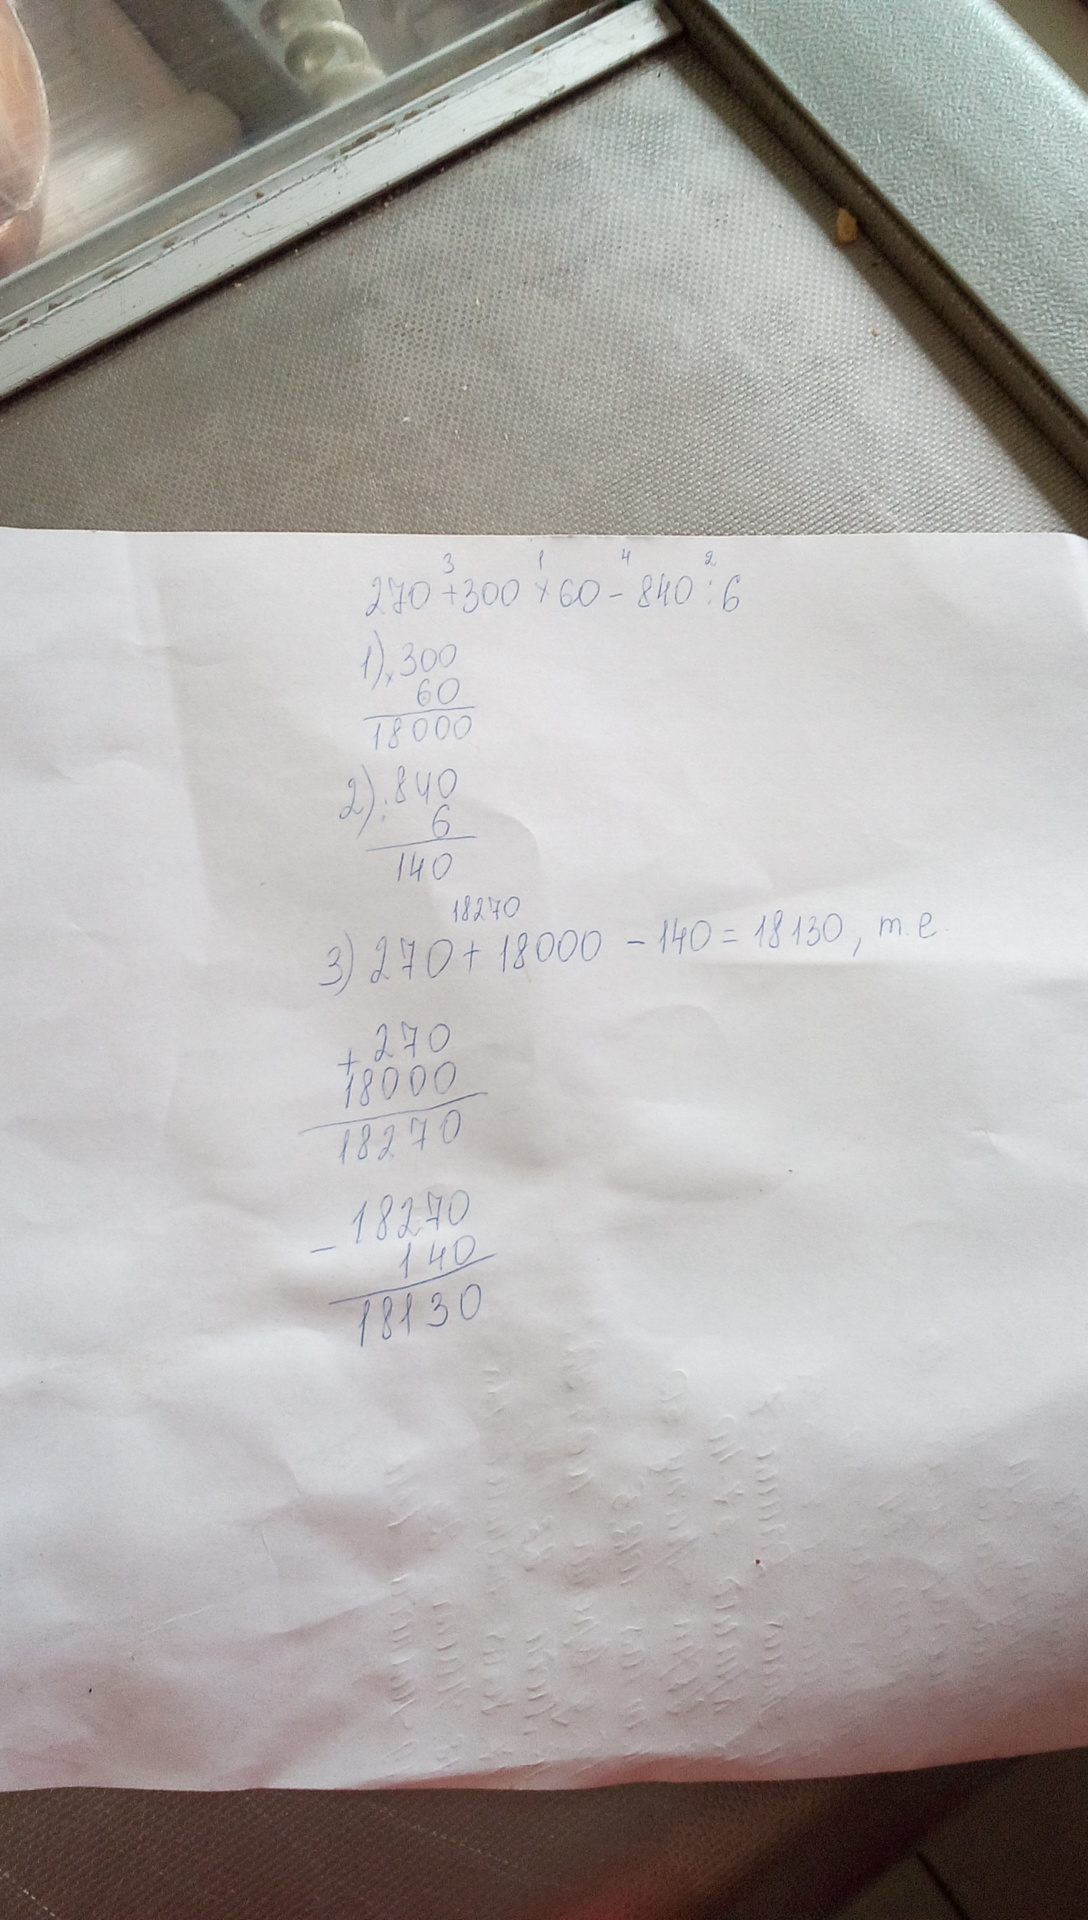 3 1 4 2
270 + 300 × 60 - 840 : 6
1) × 300
60
18000
2) : 840
6
140
18270
3) 270 + 18000 - 140 = 18130, т.е.
+ 270
18000
18270
- 18270
140
18130